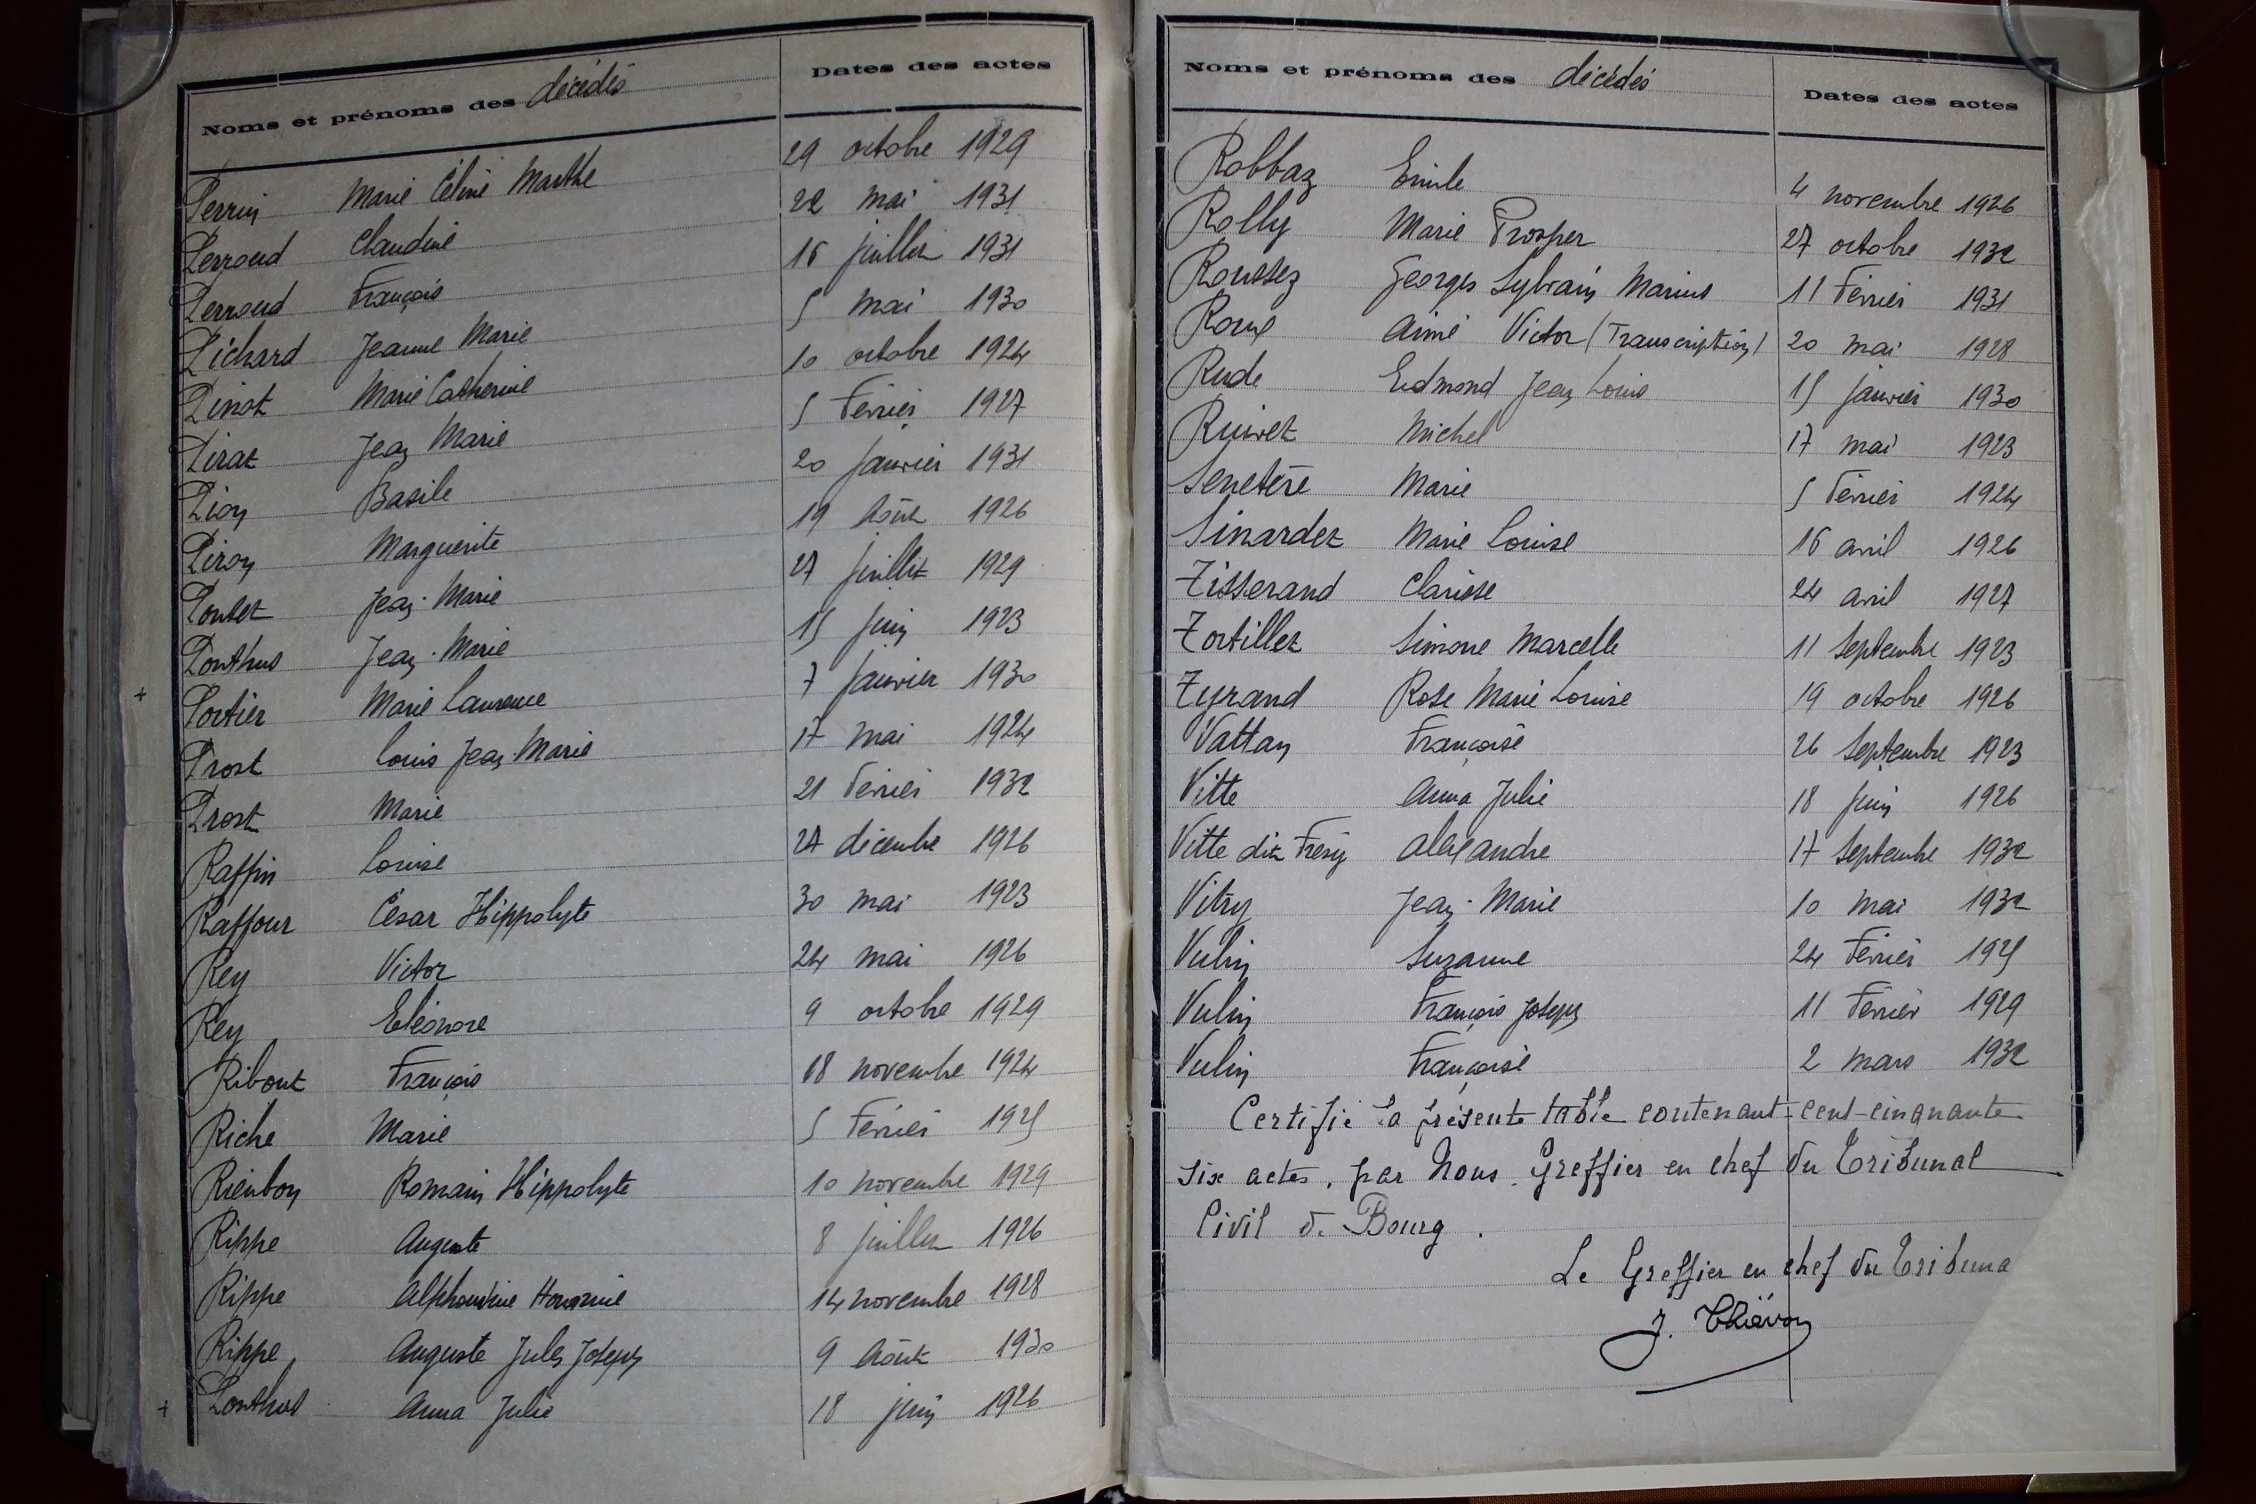 Noms et prénoms des décédés Dates des actes
Perrin Marie Céline Marthe 29 octobre 1929
Perroud Claudine 22 mai 1931
Perroud François 16 juillet 1931
Pichard Jeanne Marie 5 mai 1930
Pinot Marie Catherine 10 octobre 1924
Pirat Jean Marie 5 Février 1927
Pion Basile 20 janvier 1931
Piron Marguerite 19 Août 1926
Poulet Jean-Marie 27 juillet 1929
Ponthus Jean-Marie 15 juin 1923
+ Portier Marie Laurence 7 janvier 1930
Prost Louis Jean-Marie 17 mai 1924
Prost Marie 21 Février 1932
Raffin Louise 27 décembre 1926
Raffour César Hippolyte 30 mai 1923
Rey Victor 24 mai 1926
Rey Eléonore 9 octobre 1929
Ribout François 18 novembre 1924
Riche Marie 5 Février 1925
Rienbon Romain Hippolyte 10 novembre 1929
Rippe Auguste 8 juillet 1926
Rippe Alphonsine 14 novembre 1928
Rippe Auguste Jules Joseph 9 Août 1930
+ Ponthus Anna Julie 18 juin 1926
Noms et prénoms des décédés Dates des actes
Robbaz Emile 4 novembre 1926
Rolly Marie Prosper 27 octobre 1932
Roussez Georges Sylvain Marius 11 Février 1931
Roux Aimé Victor (Transcription) 20 mai 1928
Rude Edmond Jean Louis 15 janvier 1930
Ruivet Michel 17 mai 1923
Senetère Marie 5 Février 1924
Sinardet Marie Louise 16 avril 1926
Tisserand Clarisse 24 avril 1927
Tortillet Simone Marcelle 11 septembre 1923
Tyrand Rose Marie Louise 19 octobre 1926
Vattan Françoise 26 septembre 1923
Vitte Anna Julie 18 juin 1926
Vitte dit Frény Alexandre 17 septembre 1932
Vitry Jean-Marie 10 mai 1932
Vulin Suzanne 24 Février 1925
Vulin François Joseph 11 Février 1929
Vulin Françoise 2 mars 1932
Certifié la présente table contenant cent-cinquante
six actes, par Nous. Greffier en chef du Tribunal
Civil de Bourg.
Le Greffier en chef du Tribuna
J. Thiévon